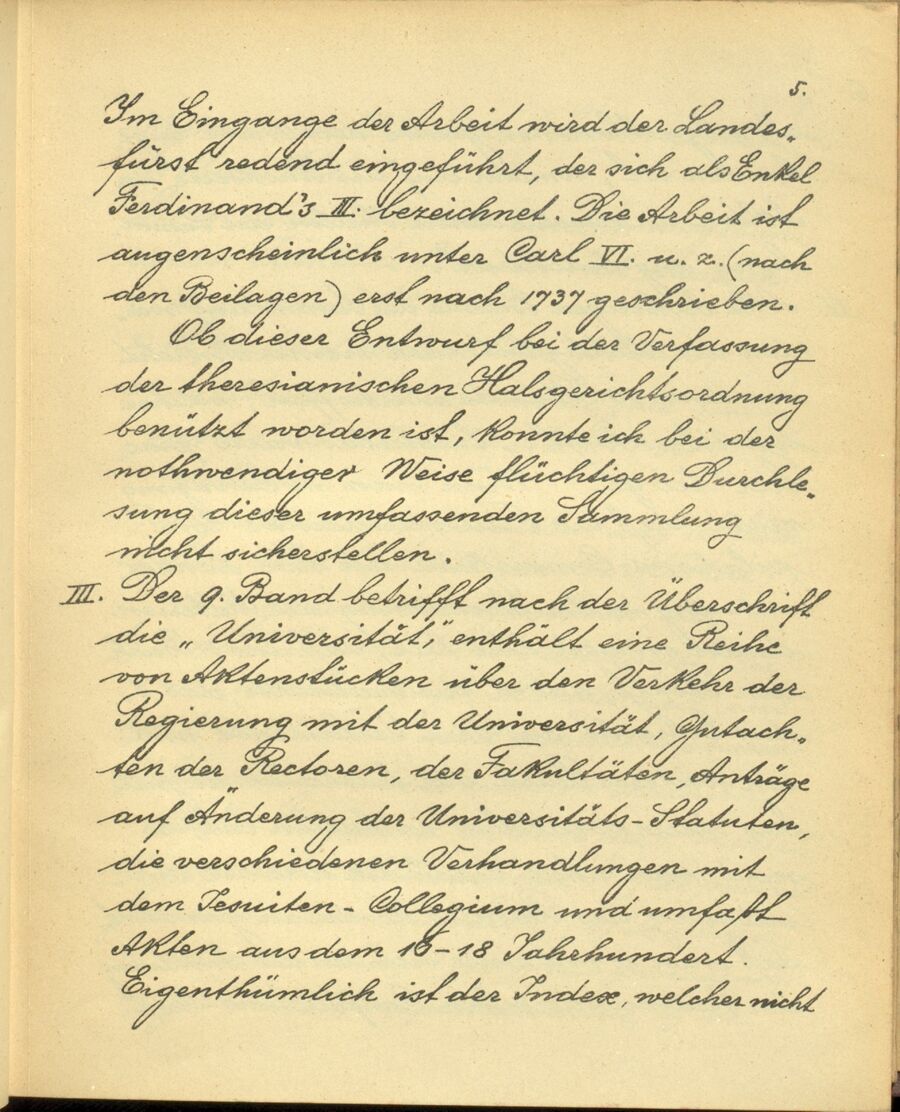 5.
Im Eingange der Arbeit wird der Landes„
fürst redend eingeführt, der sich als Enkel
Ferdinand's III. bezeichnet. Die Arbeit ist
augenscheinlich unter Carl VI. u. z. (nach
den Beilagen) erst nach 1737 geschrieben.
Ob dieser Entwurf bei der Verfassung
der theresianischen Halsgerichtsordnung
benützt worden ist, konnte ich bei der
nothwendiger Weise flüchtigen Durchle„
sung dieser umfassenden Sammlung
nicht sicherstellen.
III. Der 9. Band betrifft nach der Überschrift
die „Universität," enthält eine Reihe
von Aktenstücken über den Verkehr der
Regierung mit der Universität, Gutach„
ten der Rectoren, der Fakultäten, Anträge
auf Änderung der Universitäts-Statuten,
die verschiedenen Verhandlungen mit
dem Jesuiten-Collegium und umfaßt
Akten aus dem 16-18 Jahrhundert.
Eigenthümlich ist der Index, welcher nicht